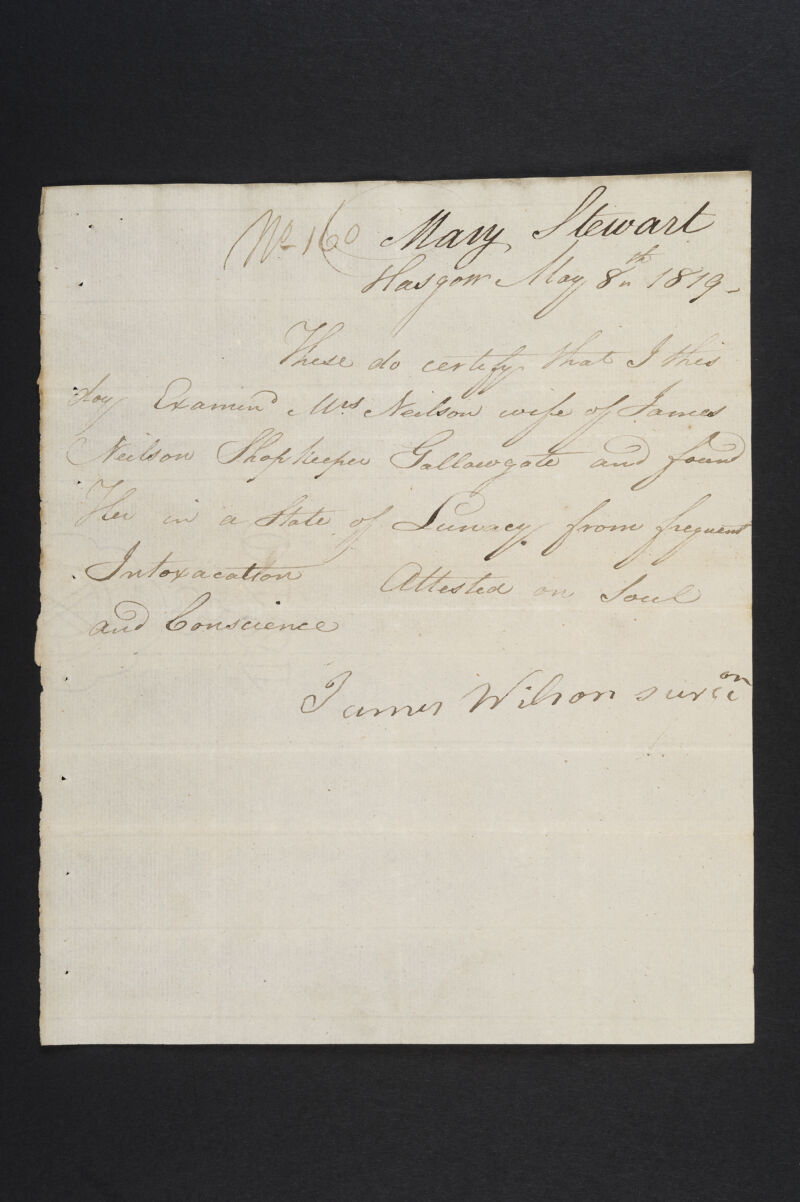 No 160 Mary Stewart
Glasgow May 8th 1819 -
These do certify that I this
day Examind Mrs Neilson wife of James
Neilson Shopkeeper Gallowgate and found
Her in a State of Lunacy from frequent
Intoxacation Attested on Soul
and Conscience
James Wilson surgeon